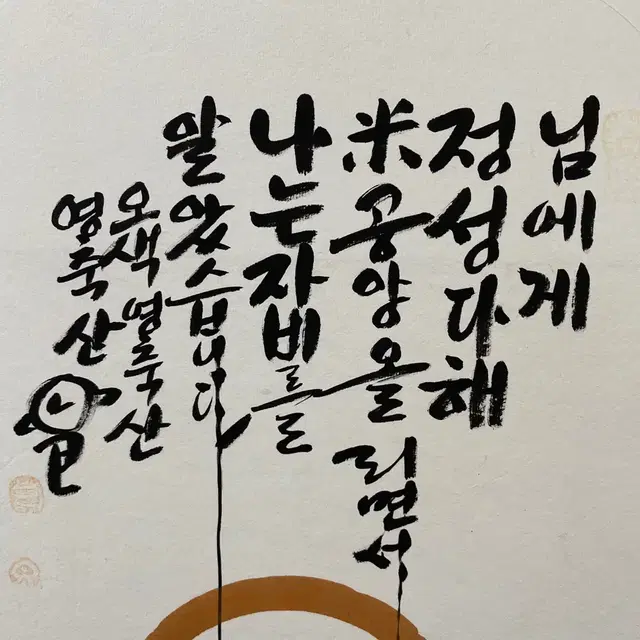 님에게
정성다해
米공양올리면서
나는자비를
말았습니다
오색영축산
영축산